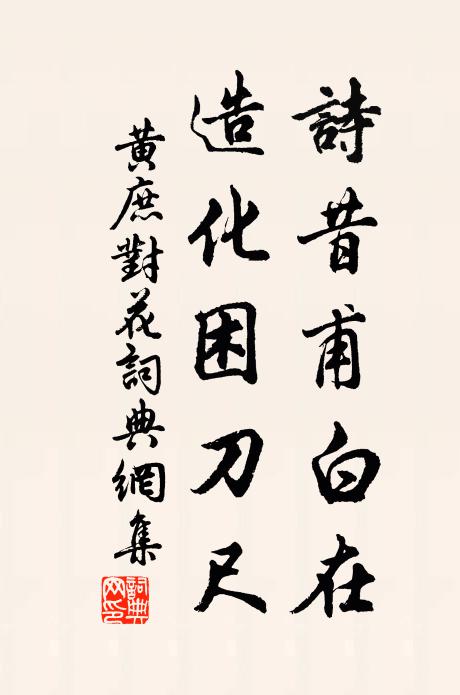 詩昔甫白在
造化困刀尺
黃庶對花詞典網集
詞典網印